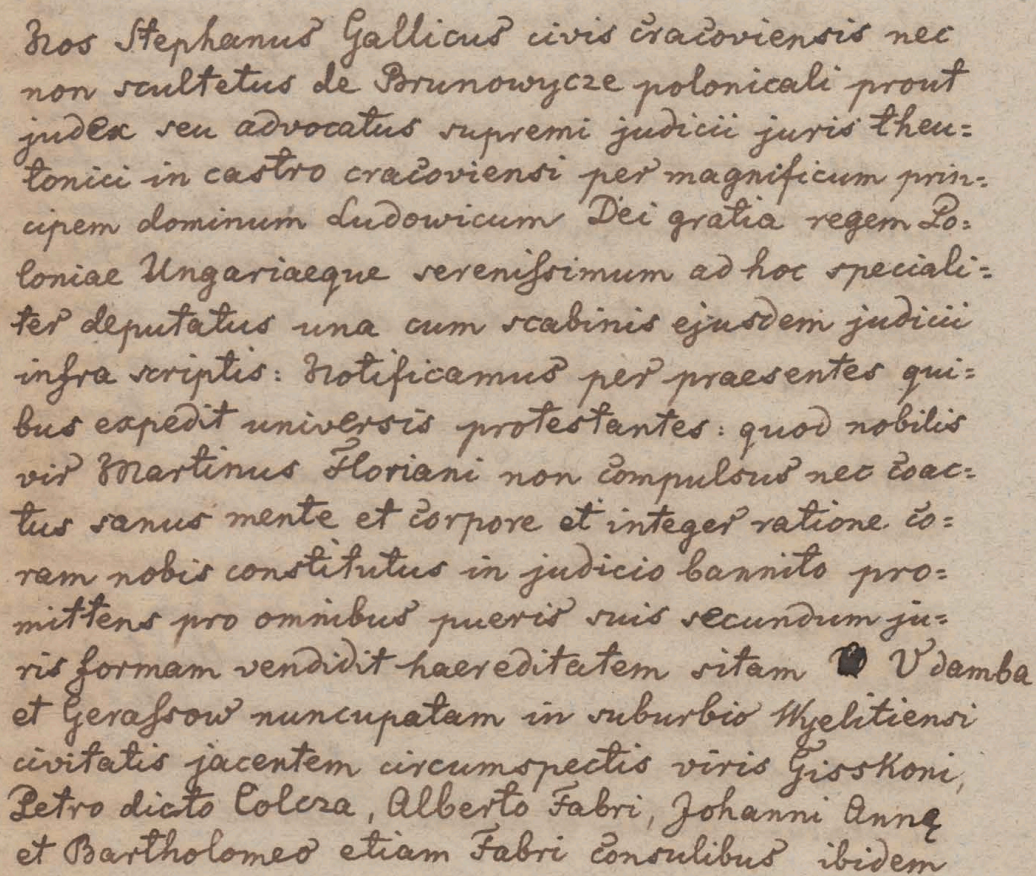 Nos Stephanus Gallicus civis cracoviensis nec
non scultetus de Brunowycze polonicali prout
judex seu advocatus supremi judicii juris theu=
tonici in castro cracoviensi per magnificum prin=
cipem dominum Ludowicum Dei gratia regem Po=
loniae Ungariaeque serenissimum ad hoc speciali=
ter deputatus una cum scabinis ejusdem judicii
infra scriptis: Notificamus per praesentes qui=
bus expedit universis protestantes: quod nobilis
vir Martinus Floriani non compulsus nec coac=
tus sanus mente et corpore et integer ratione co=
ram nobis constitutus in judicio bannito pro=
mittens pro omnibus pueris suis secundum ju=
ris formam vendidit haereditatem sitam Udamba
et Gerassow nuncupatam in suburbio Wyelitiensi
civitatis jacentem circumspectis viris Gisskoni,
Petro dicto Colcza, Alberto Fabri, Johanni Annę
et Bartholomeo etiam Fabri consulibus ibidem